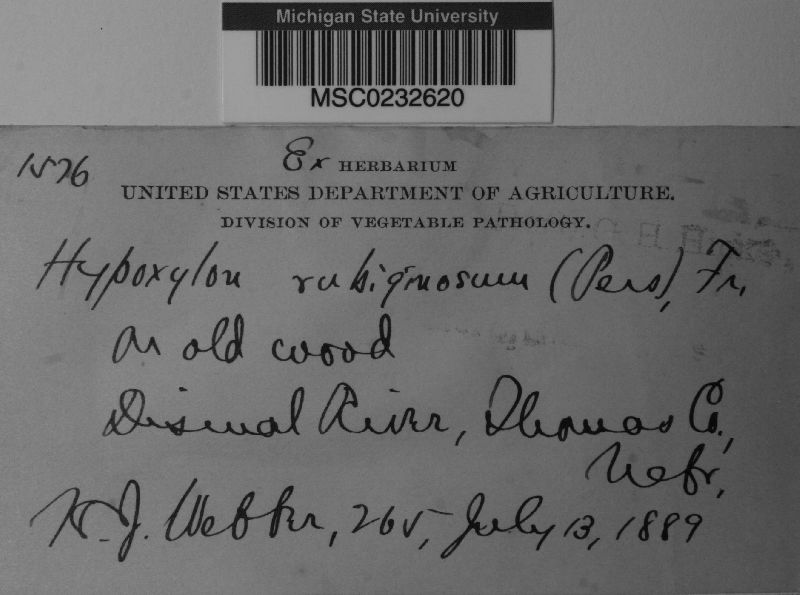 Michigan State University
MSC0232620
1576
Ex HERBARIUM
UNITED STATES DEPARTMENT OF AGRICULTURE.
DIVISION OF VEGETABLE PATHOLOGY.
Hypoxylon rubiginosum (Pers), Fr.
on old wood
Dismal River, Thomas Co.,
Nebr.,
H. J. Webber, 265, July 13, 1889